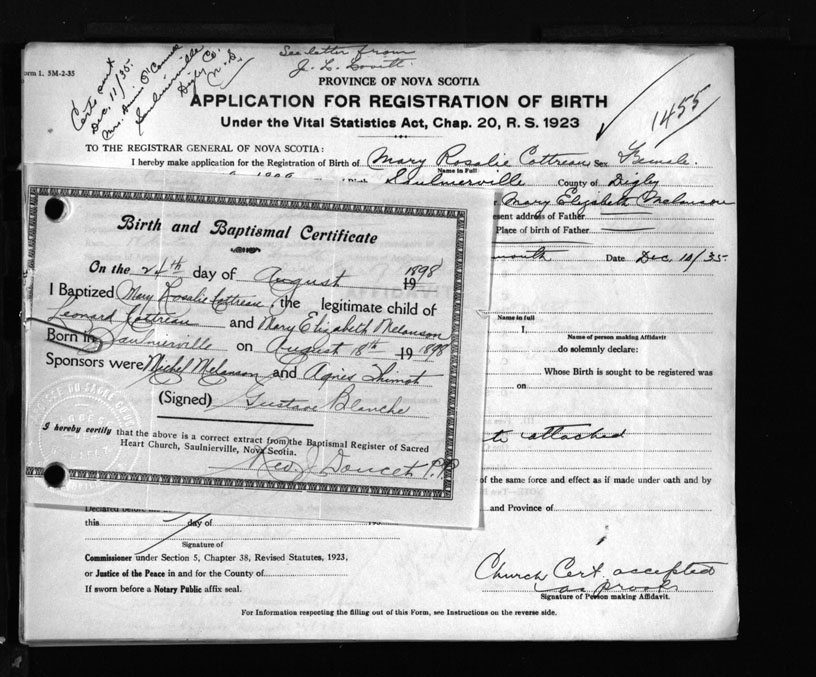 Form 1. 5M-2-35
Certs sent
Dec. 11/35.
Mrs. Annie
Saulnierville
Digby Co.
N. S.
See letter from
J. L. Lovitt
1455
PROVINCE OF NOVA SCOTIA
APPLICATION FOR REGISTRATION OF BIRTH
Under the Vital Statistics Act, Chap. 20, R. S. 1923
TO THE REGISTRAR GENERAL OF NOVA SCOTIA:
I hereby make application for the Registration of Birth of Mary Rosalie Cottreau Sex Female.
Name in Full
Saulnierville County of Digby
Mary Elizabeth Melanson
present address of Father
Place of birth of Father
Date Dec 10/35
Birth and Baptismal Certificate
On the 24th day of August 19 1898
I Baptized Mary Rosalie Cottreau, the legitimate child of
Leonard Cottreau and Mary Elizabeth Melanson
Born in Saulnierville on August 18th 19 1898
Sponsors were Michel Melanson and Agnes Thimot
(Signed) Gustave Blanche
I hereby certify that the above is a correct extract from the Baptismal Register of Sacred
Heart Church, Saulnierville, Nova Scotia.
Rev. J. Doucet P.P.
Name in full
I,
Name of person making Affidavit
do solemnly declare:
Whose Birth is sought to be registered was
on
attached
of the same force and effect as if made under oath and by
and Province of
Declared before me
this day of 193
Signature of
Commissioner under Section 5, Chapter 38, Revised Statutes, 1923,
or Justice of the Peace in and for the County of
If sworn before a Notary Public affix seal.
Church Cert. accepted
as proof.
Signature of Person making Affidavit.
For Information respecting the filling out of this Form, see Instructions on the reverse side.